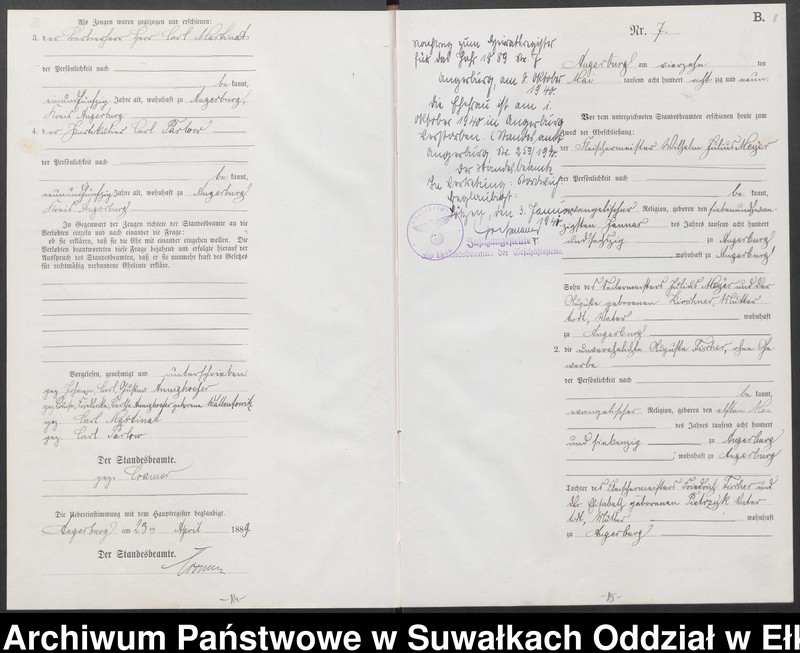 Als Zeugen waren zugezogen und erschienen:
3. der Barbierherr Herr Carl Martinat
der Persönlichkeit nach
be kannt,
einundfünfzig Jahre alt, wohnhaft zu Angerburg,
Kreis Angerburg
4. der Carl Parlow
der Persönlichkeit nach
be kannt,
neunundfünfzig Jahre alt, wohnhaft zu Angerburg
Kreis Angerburg
In Gegenwart der Zeugen richtete der Standesbeamte an die
Verlobten einzeln und nach einander die Frage:
ob sie erklären, daß sie die Ehe mit einander eingehen wollen. Die
Verlobten beantworteten diese Frage bejahend und erfolgte hierauf der
Ausspruch des Standesbeamten, daß er sie nunmehr kraft des Gesetzes
für rechtmäßig verbundene Eheleute erkläre.
Vorgelesen, genehmigt und unterschrieben
gez. Johann Carl Gustav
gez. geborene
gez. Carl Martinat
gez. Carl Parlow
Der Standesbeamte.
gez. Cramer
Die Uebereinstimmung mit dem Hauptregister beglaubigt.
Angerburg am 23ten April 1889.
Der Standesbeamte.
Cramer
-14-
B. 8
Nachtrag zum Heiratsregister
für das Jahr 1889 Nr. 7
Angerburg, am 8. Oktober
1940.
Die Ehefrau ist am 1.
Oktober 1940 in Angerburg
verstorben. (Standesamt
Angerburg Nr. 259/1940.
Der Standesbeamte
In Vertretung:
Beglaubigt:
Lötzen, den 3. Januar
1941.
Justizangestellte
als Urkundsbeamter der Geschäftsstelle
Nr. 7.
Angerburg am vierzehn ten
Mai tausend acht hundert acht zig und neun.
Vor dem unterzeichneten Standesbeamten erschienen heute zum
Zweck der Eheschließung:
der Fleischermeister Wilhelm Julius Meyer
der Persönlichkeit nach
be kannt,
evangelischer Religion, geboren den siebenundzwan-
zigsten Januar des Jahres tausend acht hundert
undsechzig zu Angerburg
wohnhaft zu Angerburg
Sohn des Julius Meyer und der
Auguste geborenen Kirschner, Mutter
todt, Vater wohnhaft
zu Angerburg
2. die unverehelichte Auguste Fischer, ohne Ge-
werbe
der Persönlichkeit nach
be kannt,
evangelischer Religion, geboren den elften Mai
des Jahres tausend acht hundert
und siebenzig zu Angerburg
, wohnhaft zu Angerburg
Tochter des Fleischermeisters Friedrich Fischer und
der Elisabeth geborenen Pietrzyk Vater
todt, Mutter wohnhaft
zu Angerburg
-15-
Archiwum Państwowe w Suwałkach Oddział w Ełk